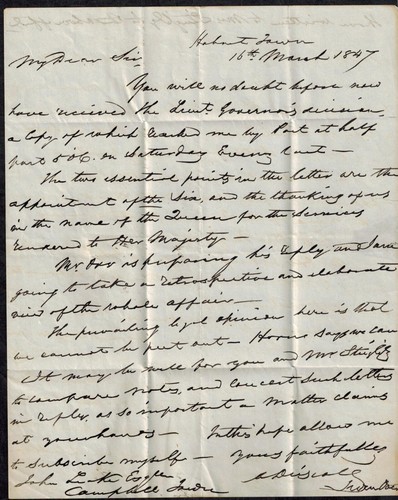 Hobart Town
16th March 1847
My Dear Sir
You will no doubt before now
have received the Lieut. Governor's decision
a Copy of which reached me by Post at half
past 5 o'C. on Saturday Eveng last —
The two essential points in the letter are the
appointment of the Six, and the thanking of us
in the name of the Queen for the Services
rendered to Her Majesty —
Mr. is preparing his reply and are
going to take a retrospective and elaborate
view of the whole affair —
The prevailing legal opinion here is that
we cannot be put out — Horne says we can
It may be well for you and Mr
to compare notes, and concert such letters
in reply, as so important a matter claims
at your hands — In this hope allow me
to subscribe myself — yours faithfully
John Leake Esqre
Campbell Town